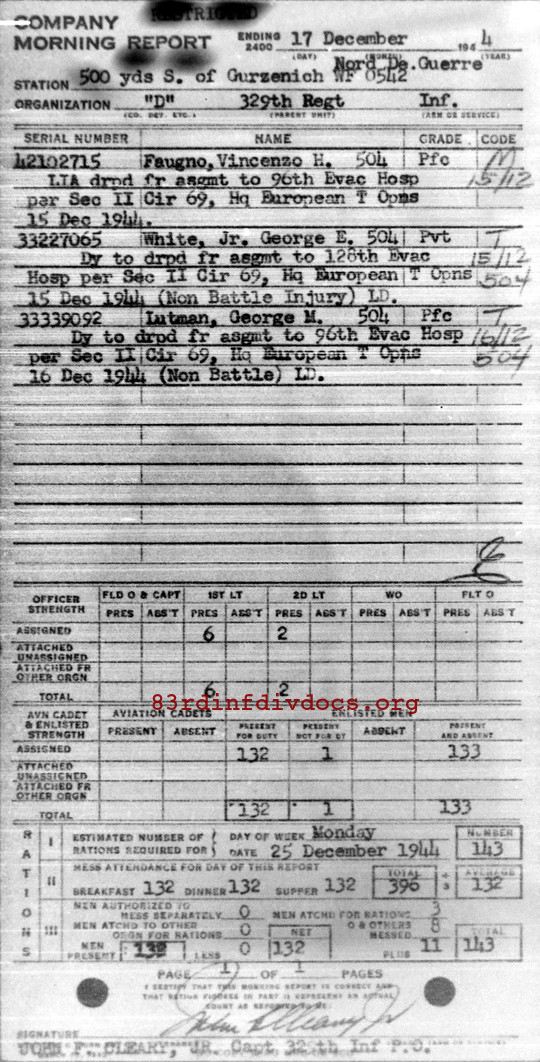 RESTRICTED
COMPANY
MORNING REPORT
ENDING 2400 17 December 1944
(DAY) (MONTH) (YEAR)
Nord De.Guerre
STATION 500 yds S. of Gurzenich WF 0542
ORGANIZATION "D" 329th Regt Inf.
(CO. DET. ETC.) (PARENT UNIT) (ARM OR SERVICE)
SERIAL NUMBER NAME GRADE CODE
42102715 Faugno, Vincenzo H. 504 Pfc M
LIA drpd fr asgmt to 96th Evac Hosp 15/12
per Sec II Cir 69, Hq European T Opns
15 Dec 1944.
33227065 White, Jr. George E. 504 Pvt T
Dy to drpd fr asgmt to 128th Evac 15/12
Hosp per Sec II Cir 69, Hq European T Opns 504
15 Dec 1944 (Non Battle Injury) LD.
33339092 Lutman, George M. 504 Pfc T
Dy to drpd fr asgmt to 96th Evac Hosp 16/12
per Sec II Cir 69, Hq European T Opns 504
16 Dec 1944 (Non Battle) LD.
OFFICER STRENGTH FLD O & CAPT 1ST LT 2D LT WO FLT O
PRES ABS'T PRES ABS'T PRES ABS'T PRES ABS'T PRES ABS'T
ASSIGNED 6 2
ATTACHED UNASSIGNED
ATTACHED FR OTHER ORGN
TOTAL 6 2
83rdinfdivdocs.org
AVN CADET & ENLISTED STRENGTH AVIATION CADETS ENLISTED MEN
PRESENT ABSENT PRESENT FOR DUTY PRESENT NOT FOR DY ABSENT PRESENT AND ABSENT
ASSIGNED 132 1 133
ATTACHED UNASSIGNED
ATTACHED FR OTHER ORGN
TOTAL 132 1 133
RATIONS
I ESTIMATED NUMBER OF RATIONS REQUIRED FOR DAY OF WEEK Monday NUMBER
DATE 25 December 1944 143
II MESS ATTENDANCE FOR DAY OF THIS REPORT TOTAL AVERAGE
BREAKFAST 132 DINNER 132 SUPPER 132 396 ÷ 3 132
III MEN AUTHORIZED TO MESS SEPARATELY 0 MEN ATCHD FOR RATIONS 3
MEN ATCHD TO OTHER ORGN FOR RATIONS 0 NET O & OTHERS MESSED 8 TOTAL
MEN PRESENT 132 LESS 0 132 PLUS 11 143
PAGE 1 OF 1 PAGES
I CERTIFY THAT THIS MORNING REPORT IS CORRECT AND
THAT RATION FIGURES IN PART II REPRESENT AN ACTUAL
COUNT AS REPORTED
SIGNATURE John F. Cleary Jr
JOHN F. CLEARY, JR Capt 329th Inf P.O.